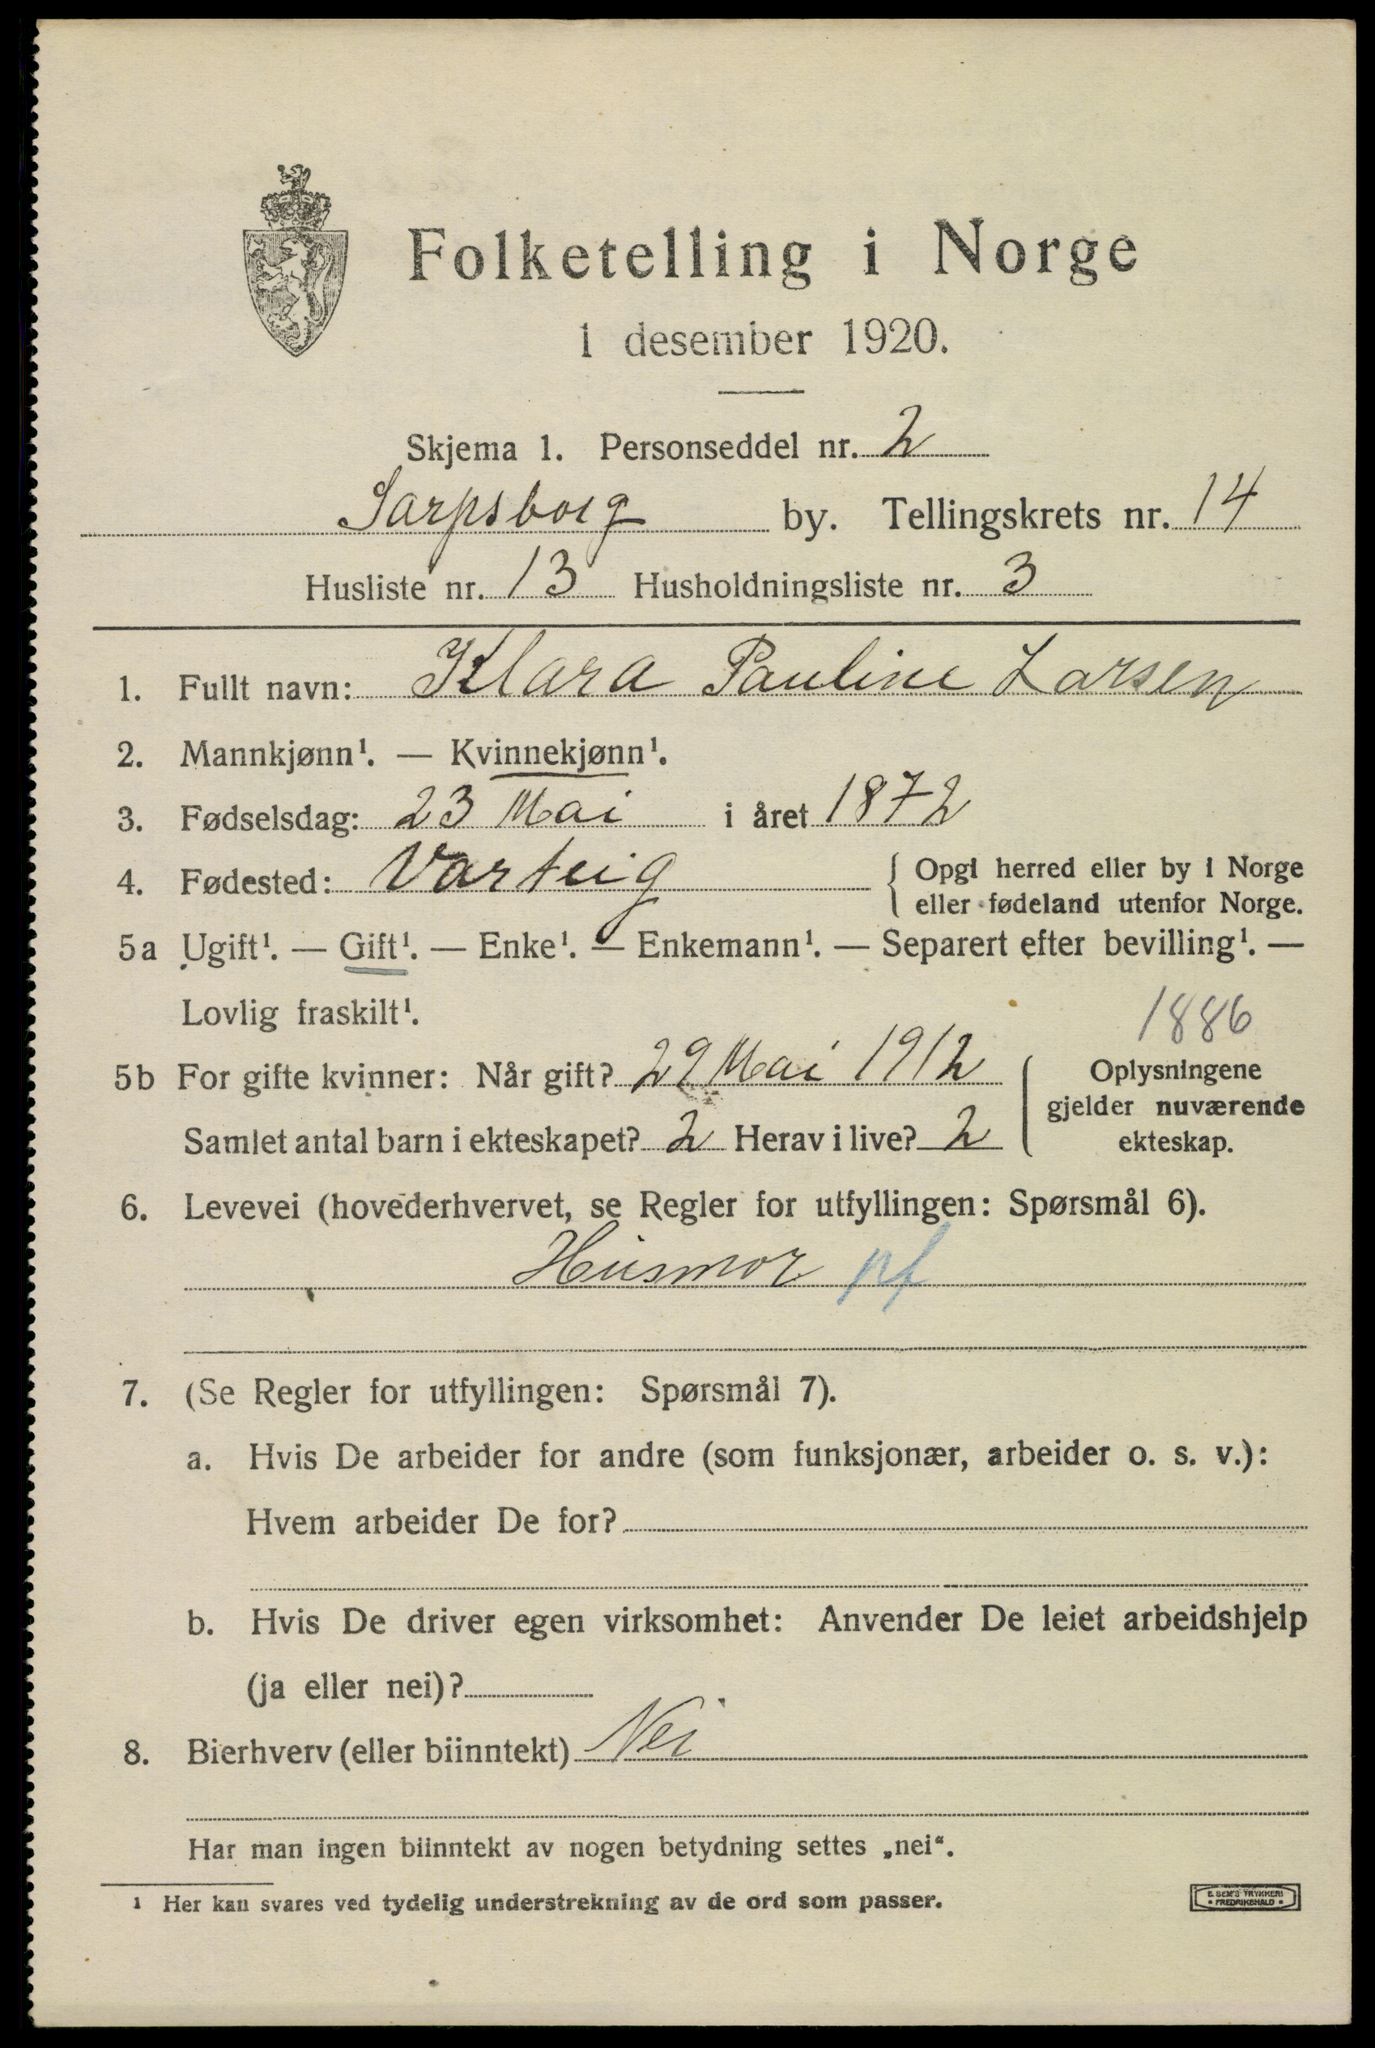 Folketelling i Norge
1 desember 1920.
Skjema 1. Personseddel nr. 2
Sarpsborg by. Tellingskrets nr. 14
Husliste nr. 13 Husholdningsliste nr. 3
1. Fullt navn: Klara Pauline Larsen
2. Mannkjønn¹. — Kvinnekjønn¹.
3. Fødselsdag: 23 Mai i året 1872
4. Fødested: Varteig { Opgi herred eller by i Norge
eller fødeland utenfor Norge.
5a Ugift¹. — Gift¹. — Enke¹. — Enkemann¹. — Separert efter bevilling¹. —
Lovlig fraskilt¹.
1886
5b For gifte kvinner: Når gift? 29 Mai 1912
Samlet antal barn i ekteskapet? 2 Herav i live? 2
Oplysningene
gjelder nuværende
ekteskap.
6. Levevei (hovederhvervet, se Regler for utfyllingen: Spørsmål 6).
Husmor pf
7. (Se Regler for utfyllingen: Spørsmål 7).
a. Hvis De arbeider for andre (som funksjonær, arbeider o. s. v.):
Hvem arbeider De for?
b. Hvis De driver egen virksomhet: Anvender De leiet arbeidshjelp
(ja eller nei)?
8. Bierhverv (eller biinntekt) Nei
Har man ingen biinntekt av nogen betydning settes „nei“.
¹ Her kan svares ved tydelig understrekning av de ord som passer.
E. SEM'S TRYKKERI
• FREDRIKSHALD •